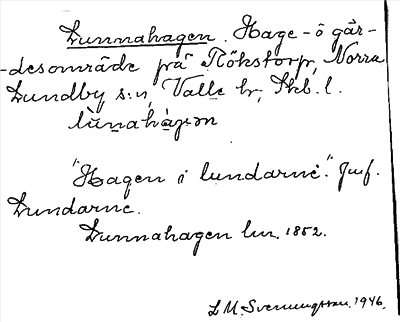 Lunnahagen. Hage- o gär-
-desområde på Rökstorp, Norra
Lundby s:n, Valle hr, Skb. l.
lùnahàgən
"Hagen i lundarne". Jmf.
Lundarne.
Lunnahagen lm. 1852.
L M. Svenungsson. 1946.